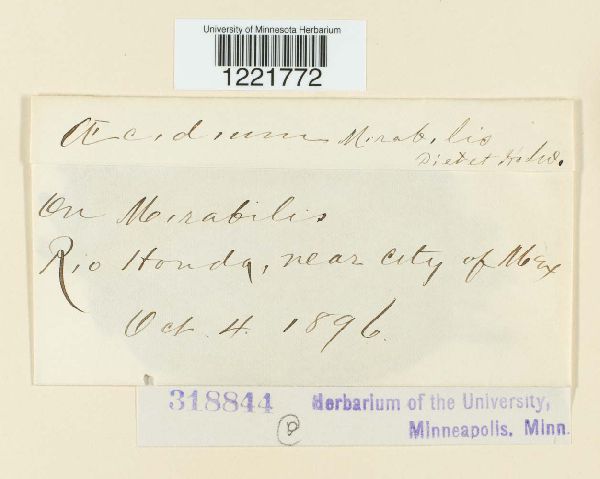 University of Minnesota Herbarium
1221772
Æcidium Mirabilis
Diet et Holw.
On Mirabilis
Rio Honda, near city of Mex
Oct. 4. 1896.
318844 Herbarium of the University,
P
Minneapolis, Minn.